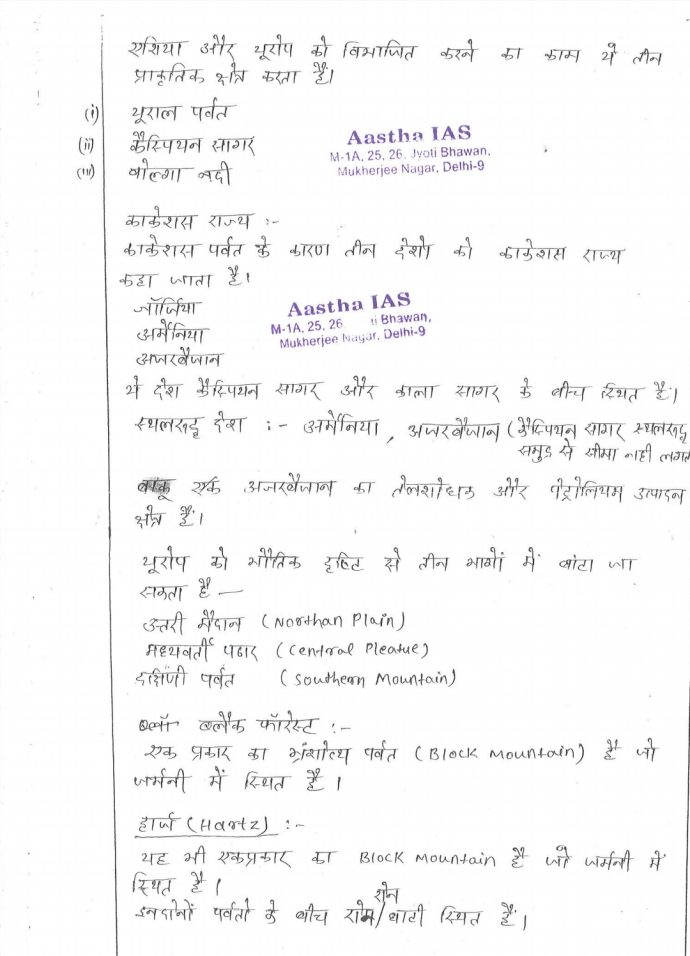 एशिया और यूरोप को विभाजित करने का काम ये तीन
प्राकृतिक क्षेत्र करता है।
(i) यूराल पर्वत
(ii) कैस्पियन सागर
(iii) वोल्गा नदी
Aastha IAS
M-1A, 25, 26, Jyoti Bhawan,
Mukherjee Nagar, Delhi-9
काकेशस राज्य :-
काकेशस पर्वत के कारण तीन देशो को काकेशस राज्य
कहा जाता है।
जॉर्जिया
अर्मेनिया
अजरबैजान
Aastha IAS
M-1A, 25, 26 ti Bhawan,
Mukherjee Nagar, Delhi-9
ये देश कैस्पियन सागर और काला सागर के बीच स्थित है।
स्थलरुद्ध देश :- अर्मेनिया, अजरबैजान (कैस्पियन सागर स्थलरुद्ध
समुद्र से सीमा नही लगत
बाकू एक अजरबैजान का तेलशोधक और पेट्रोलियम उत्पादन
क्षेत्र है।
यूरोप को भौतिक दृष्टि से तीन भागों में बांटा जा
सकता है —
उत्तरी मैदान (Northan Plain)
मध्यवर्ती पठार (Central Pleatue)
दक्षिणी पर्वत (Southern Mountain)
ब्लैक फॉरेस्ट :-
एक प्रकार का भ्रंशोत्थ पर्वत (Block Mountain) है जो
जर्मनी में स्थित है।
हार्ज (Hartz) :-
यह भी एकप्रकार का Block Mountain है जो जर्मनी में
स्थित है।
इनदोनों पर्वतो के बीच राईन/रोन घाटी स्थित है।